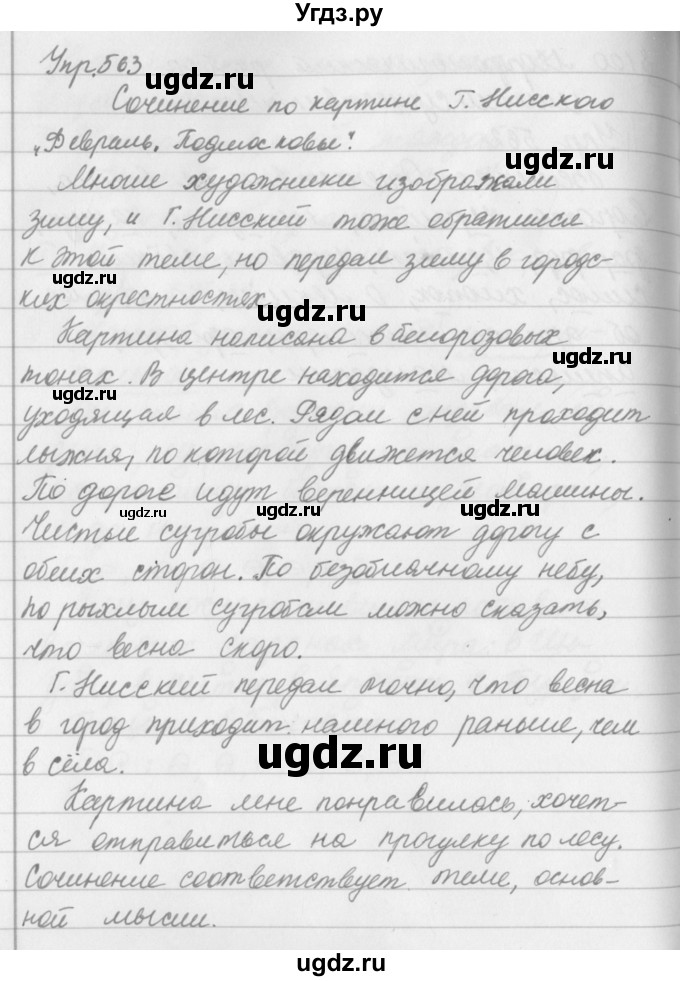 Угдз.ру
Упр.563
Сочинение по картине Г. Нисского
„Февраль. Подмосковье".
Многие художники изображали
зиму, и Г. Нисский тоже обратился
к этой теме, но передал зиму в городс-
ких окрестностях.
Картина написана в белорозовых
тонах. В центре находится дорога,
уходящая в лес. Рядом с ней проходит
лыжня, по которой движется человек.
По дороге идут веренницей машины.
Чистые сугробы окружают дорогу с
обеих сторон. По безоблачному небу,
по рыхлым сугробам можно сказать,
что весна скоро.
Г. Нисский передал точно, что весна
в город приходит намного раньше, чем
в сёла.
Картина мне понравилась, хочет-
ся отправиться на прогулку по лесу.
Сочинение соответствует теме, основ-
ной мысли.
ugdz.ru
ugdz.ru
ugdz.ru
ugdz.ru
ugdz.ru
ugdz.ru
ugdz.ru
ugdz.ru
ugdz.ru
ugdz.ru
ugdz.ru
ugdz.ru
ugdz.ru